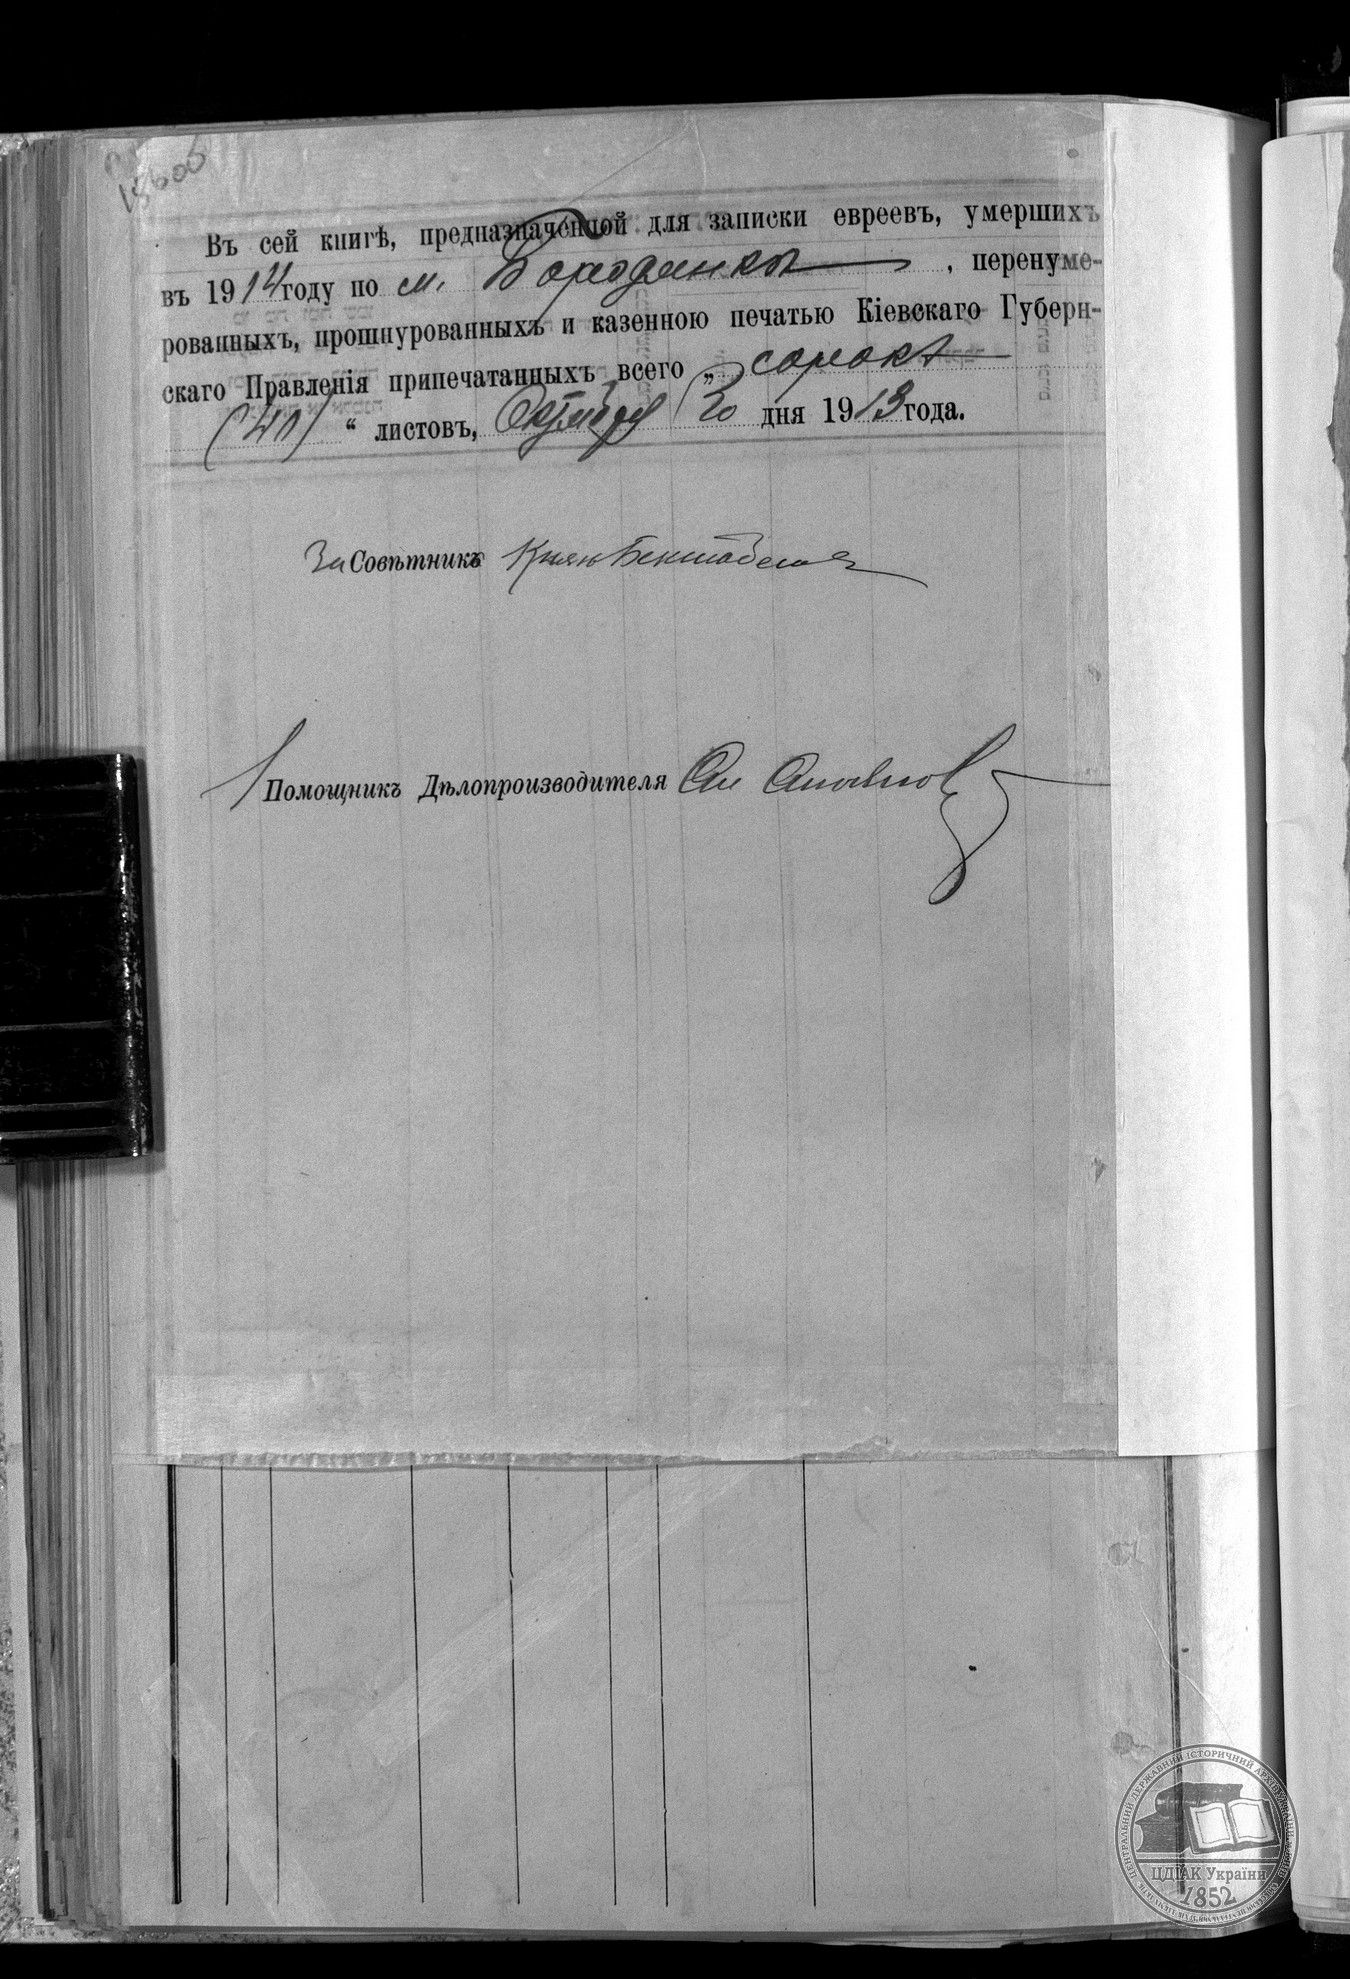 Въ сей книгѣ, предназначенной для записки евреевъ, умершихъ
въ 1914 году по м. Бородянкѣ, перенуме-
рованныхъ, прошнурованныхъ и казенною печатью Кіевскаго Губерн-
скаго Правленія припечатанныхъ всего „ сорокъ
(40) “ листовъ, Октября 20 дня 1913 года.
За Совѣтникъ
Помощникъ Дѣлопроизводителя
ЦЕНТРАЛЬНИЙ ДЕРЖАВНИЙ ІСТОРИЧНИЙ АРХІВ УКРАЇНИ
ЦДІАК України
1852